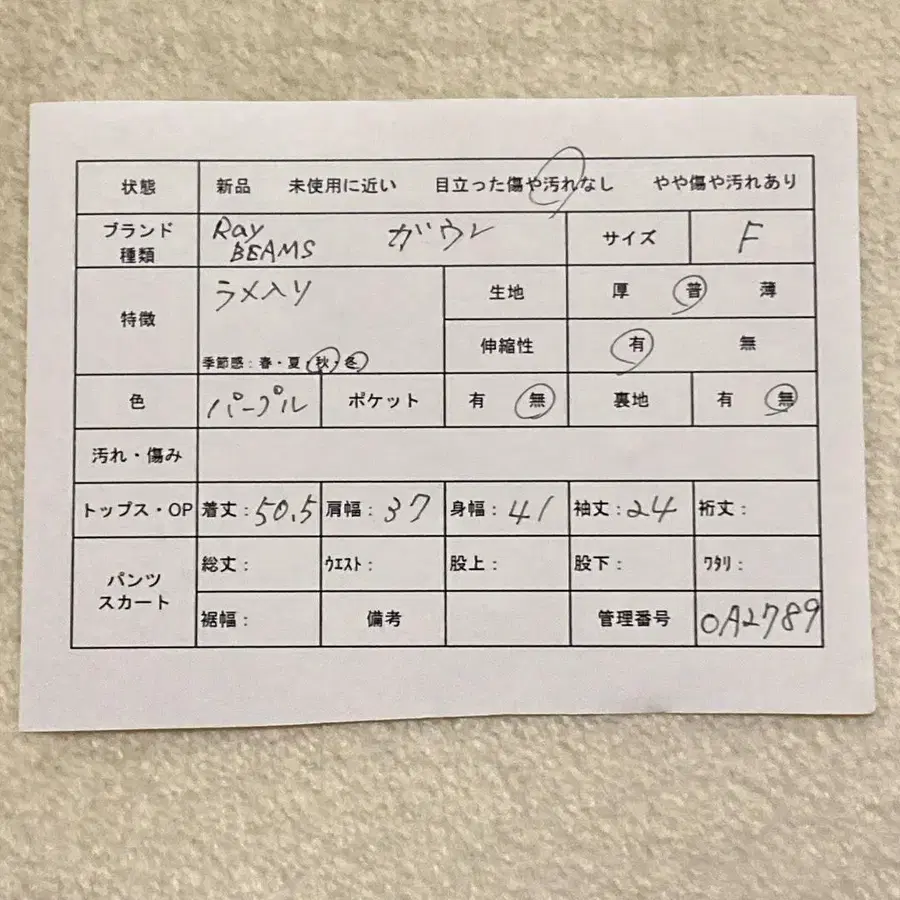 状態 新品 未使用に近い 目立った傷や汚れなし やや傷や汚れあり
ブランド 種類 Ray BEAMS ガウン サイズ F
特徴 ラメ入り 生地 厚 普 薄
季節感：春・夏・秋・冬 伸縮性 有 無
色 パープル ポケット 有 無 裏地 有 無
汚れ・傷み
トップス・OP 着丈：50.5 肩幅：37 身幅：41 袖丈：24 裄丈：
パンツ スカート 総丈： ｳｴｽﾄ： 股上： 股下： ﾜﾀﾘ：
裾幅： 備考 管理番号 OA2789